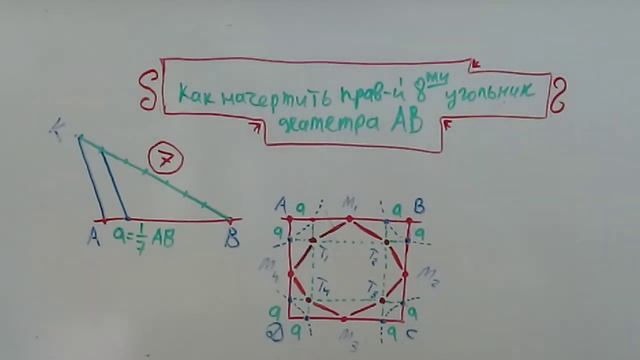 Как начертить прав-й 8ми угольник
диаметра АВ
K
7
A a=1/7 AB B
A a M₁ a B
a a
T₁ T₂
M₄ M₂
T₄ T₃
a a
D a M₃ a C